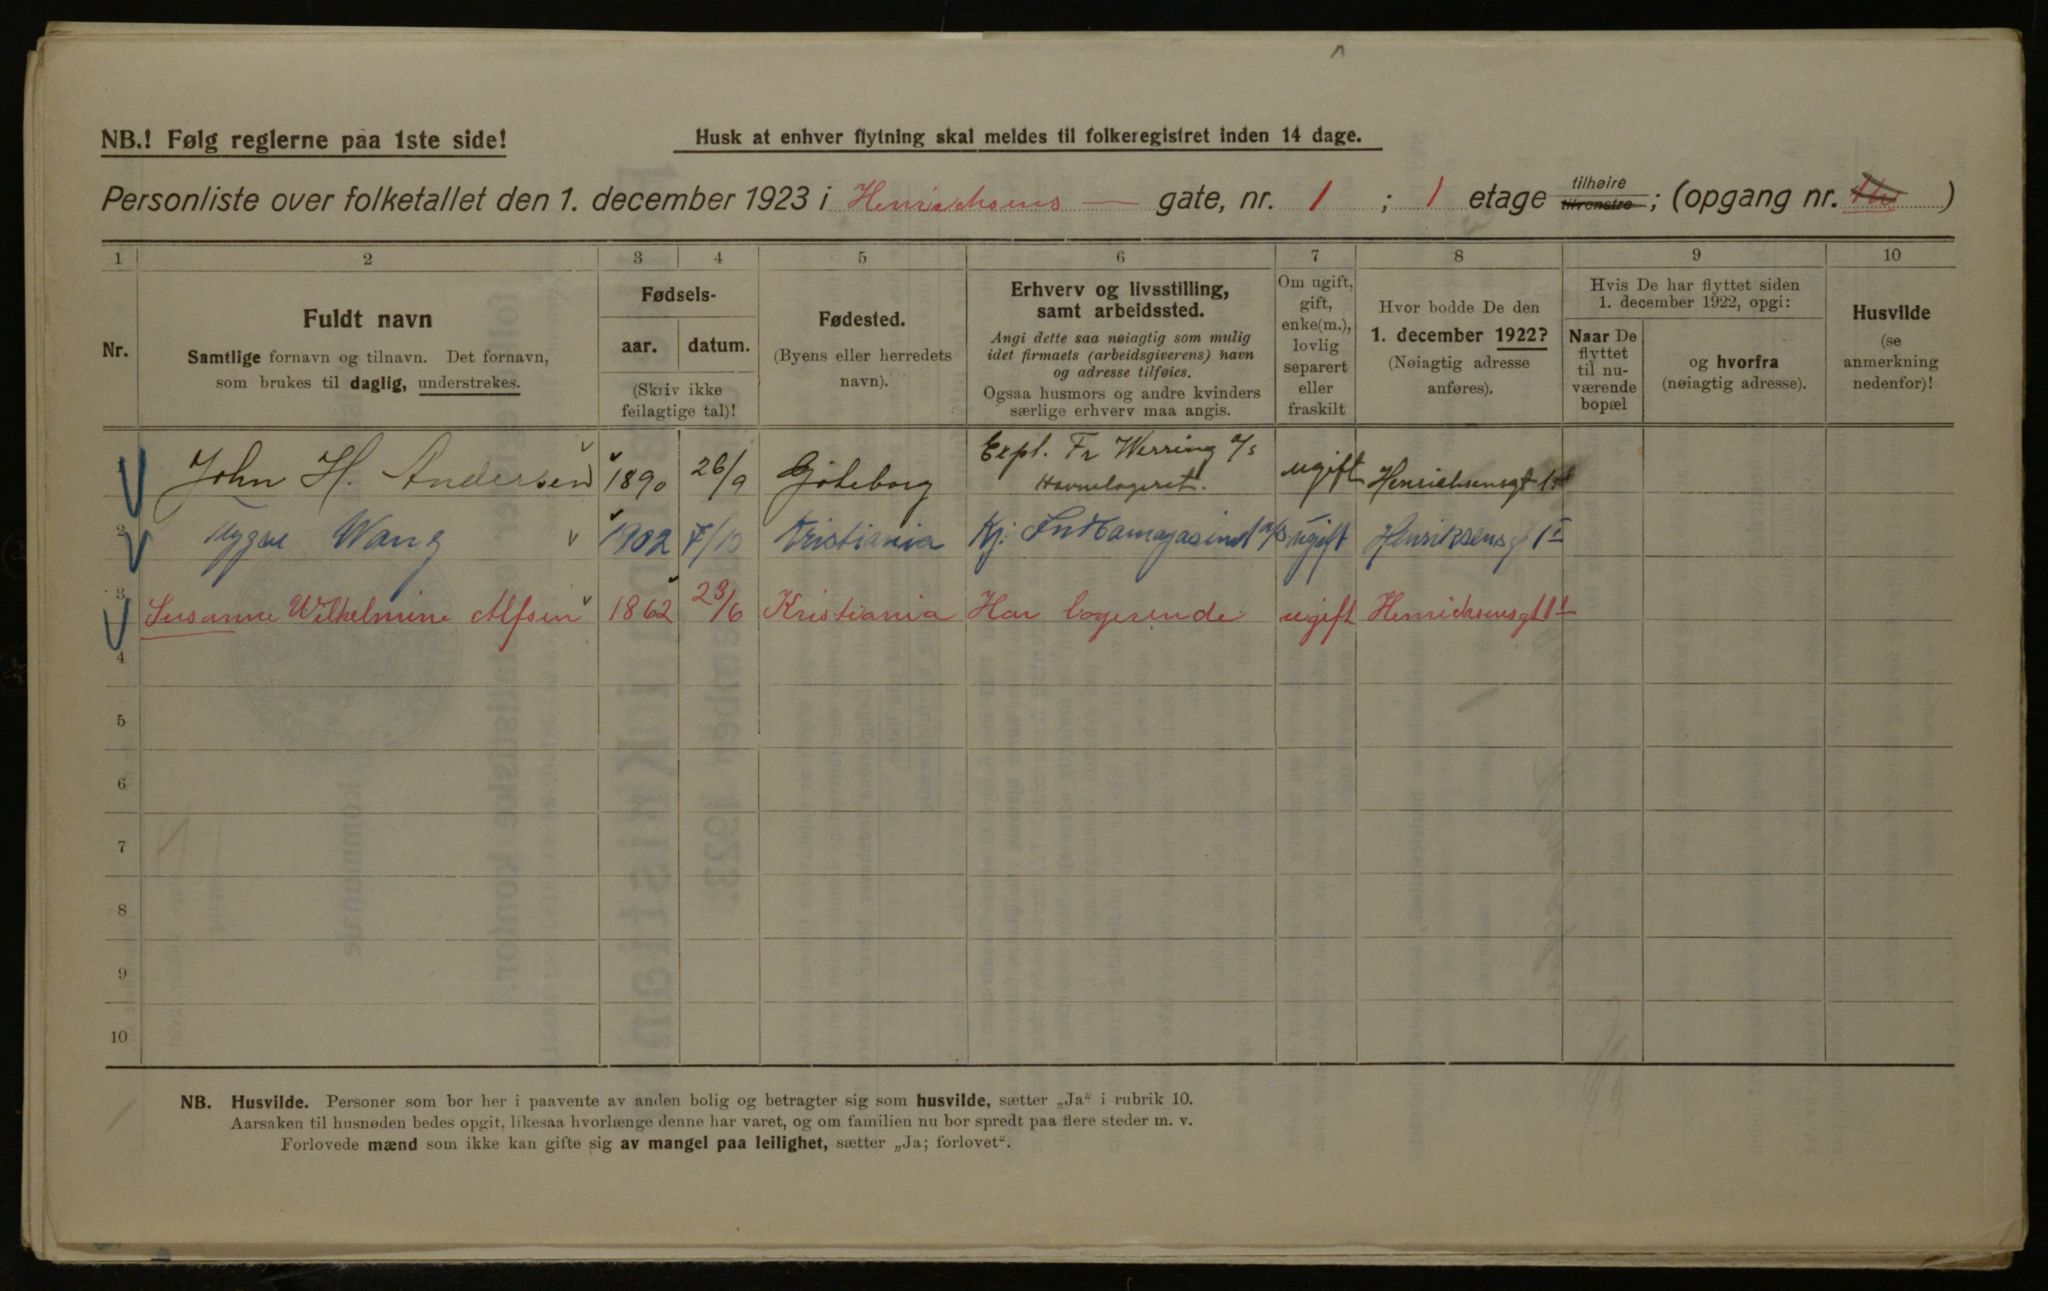 NB.! Følg reglerne paa 1ste side!
Husk at enhver flytning skal meldes til folkeregistret inden 14 dage.
Personliste over folketallet den 1. december 1923 i Henrichsens — gate, nr. 1 ; 1 etage tilhøire tilvenstre ; (opgang nr. )
1 2 3 4 5 6 7 8 9 10
Nr.
Fuldt navn
Samtlige fornavn og tilnavn. Det fornavn,
som brukes til daglig, understrekes.
Fødsels-
aar. datum.
(Skriv ikke
feilagtige tal)!
Fødested.
(Byens eller herredets
navn).
Erhverv og livsstilling,
samt arbeidssted.
Angi dette saa nøiagtig som mulig
idet firmaets (arbeidsgiverens) navn
og adresse tilføies.
Ogsaa husmors og andre kvinders
særlige erhverv maa angis.
Om ugift,
gift,
enke(m.),
lovlig
separert
eller
fraskilt
Hvor bodde De den
1. december 1922?
(Nøiagtig adresse
anføres).
Hvis De har flyttet siden
1. december 1922, opgi:
Naar De
flyttet
til nu-
værende
bopæl
og hvorfra
(nøiagtig adresse).
Husvilde
(se
anmerkning
nedenfor)!
John H. Andersen 1890 26/9 Göteborg Expl. Fr Werring A/s Havnelageret. ugift Henrichsensgt 1
2 Tygve Wang 1902 Kristiania ugift Henriksensgt 1 I
3 Susanne Wilhelmine Alfsen 1862 23/6 Kristiania Har logerende ugift Henrichsensgt 1
4
5
6
7
8
9
10
NB. Husvilde. Personer som bor her i paavente av anden bolig og betragter sig som husvilde, sætter „Ja“ i rubrik 10.
Aarsaken til husnøden bedes opgit, likesaa hvorlænge denne har varet, og om familien nu bor spredt paa flere steder m. v.
Forlovede mænd som ikke kan gifte sig av mangel paa leilighet, sætter „Ja; forlovet“.